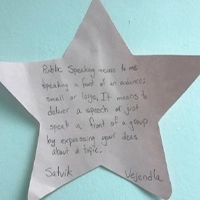 Public Speaking means to me
speaking n front of an audience
small or large, It means to
deliver a speech or just
speak n front of a group
by expressing your ideas
about a topic.
Satvik Vejendla